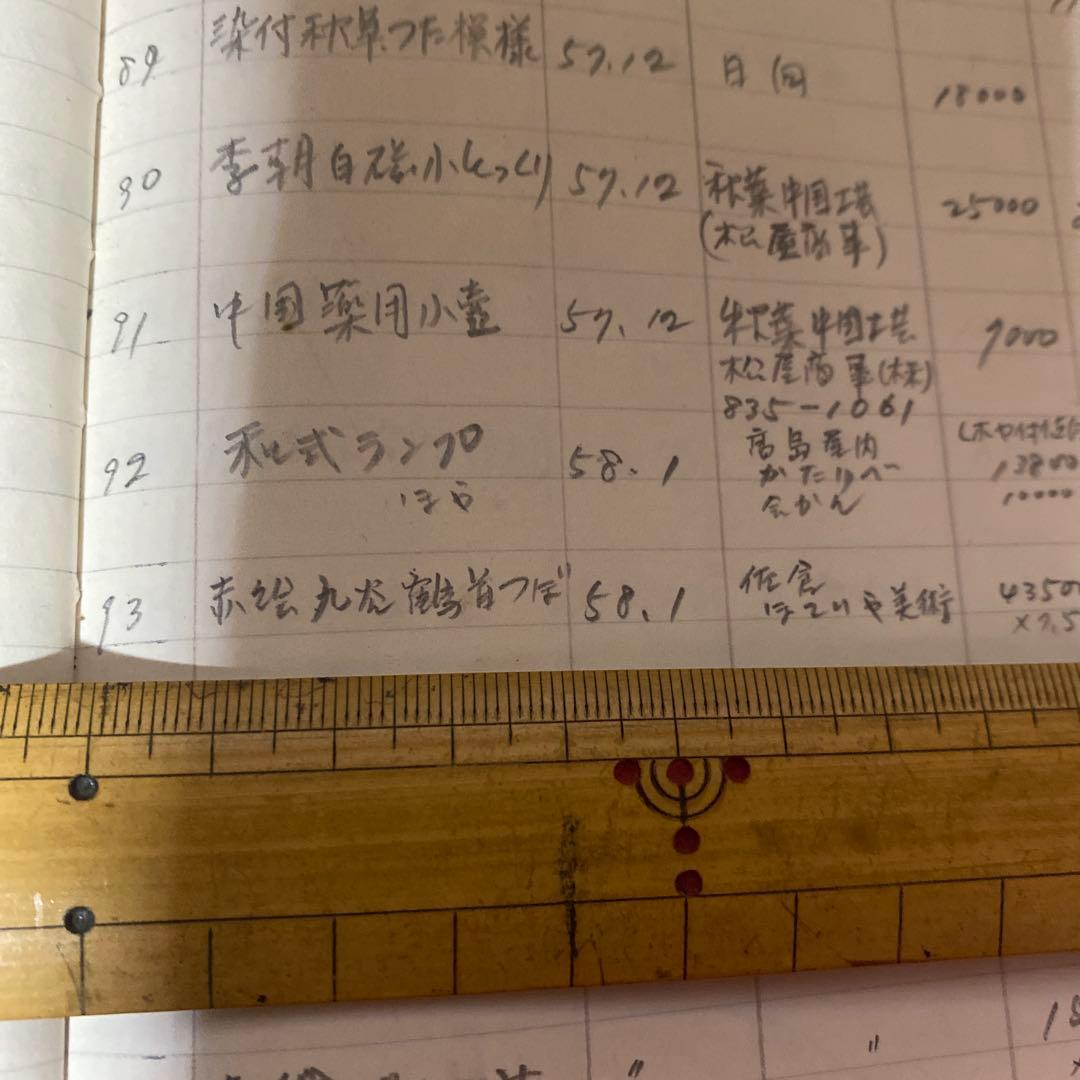 89 染付秋草つた模様 57.12 日向 18000
90 李朝白磁小とっくり 57.12 秋葉中国工芸 25000
(松屋商事)
91 中国薬用小壷 57.12 秋葉中国工芸 9000
松屋商事(株)
835-1061
92 和式ランプ 58.1 高島屋内
ほや かたりべ 13800
会かん 10000
93 赤絵九谷鶴首つぼ 58.1 佐倉 4350
ほていや美術 ×7.5
〃 〃